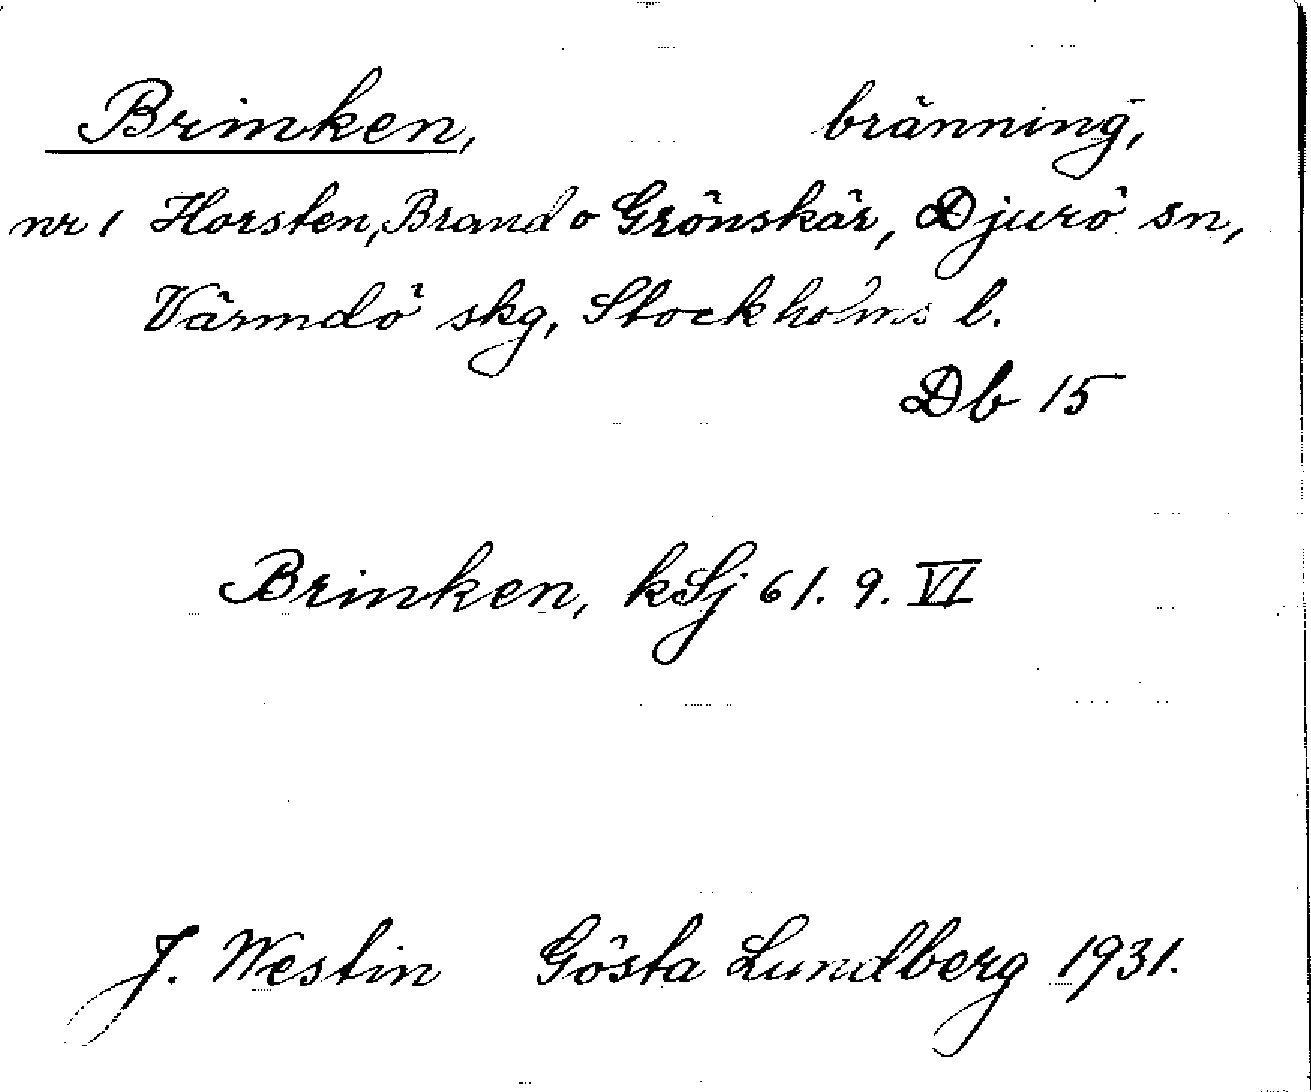 Brinken, bränning,
nr 1 Horsten, Brand o Grönskär, Djurö sn,
Värmdö skg, Stockholms l.
Db 15
Brinken, kSj 61. 9. VI
J. Westin Gösta Lundberg 1931.